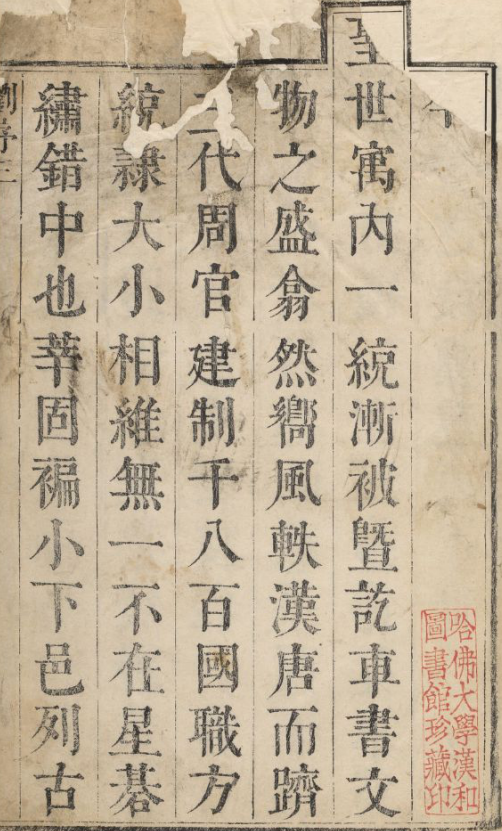 聖世寓內一統漸被暨訖車書文
物之盛翕然嚮風軼漢唐而躋
三代周官建制千八百國職方
綂隷大小相維無一不在星碁
繡錯中也莘固褊小下邑列古
劉序三
哈佛大學漢和
圖書館珍藏印